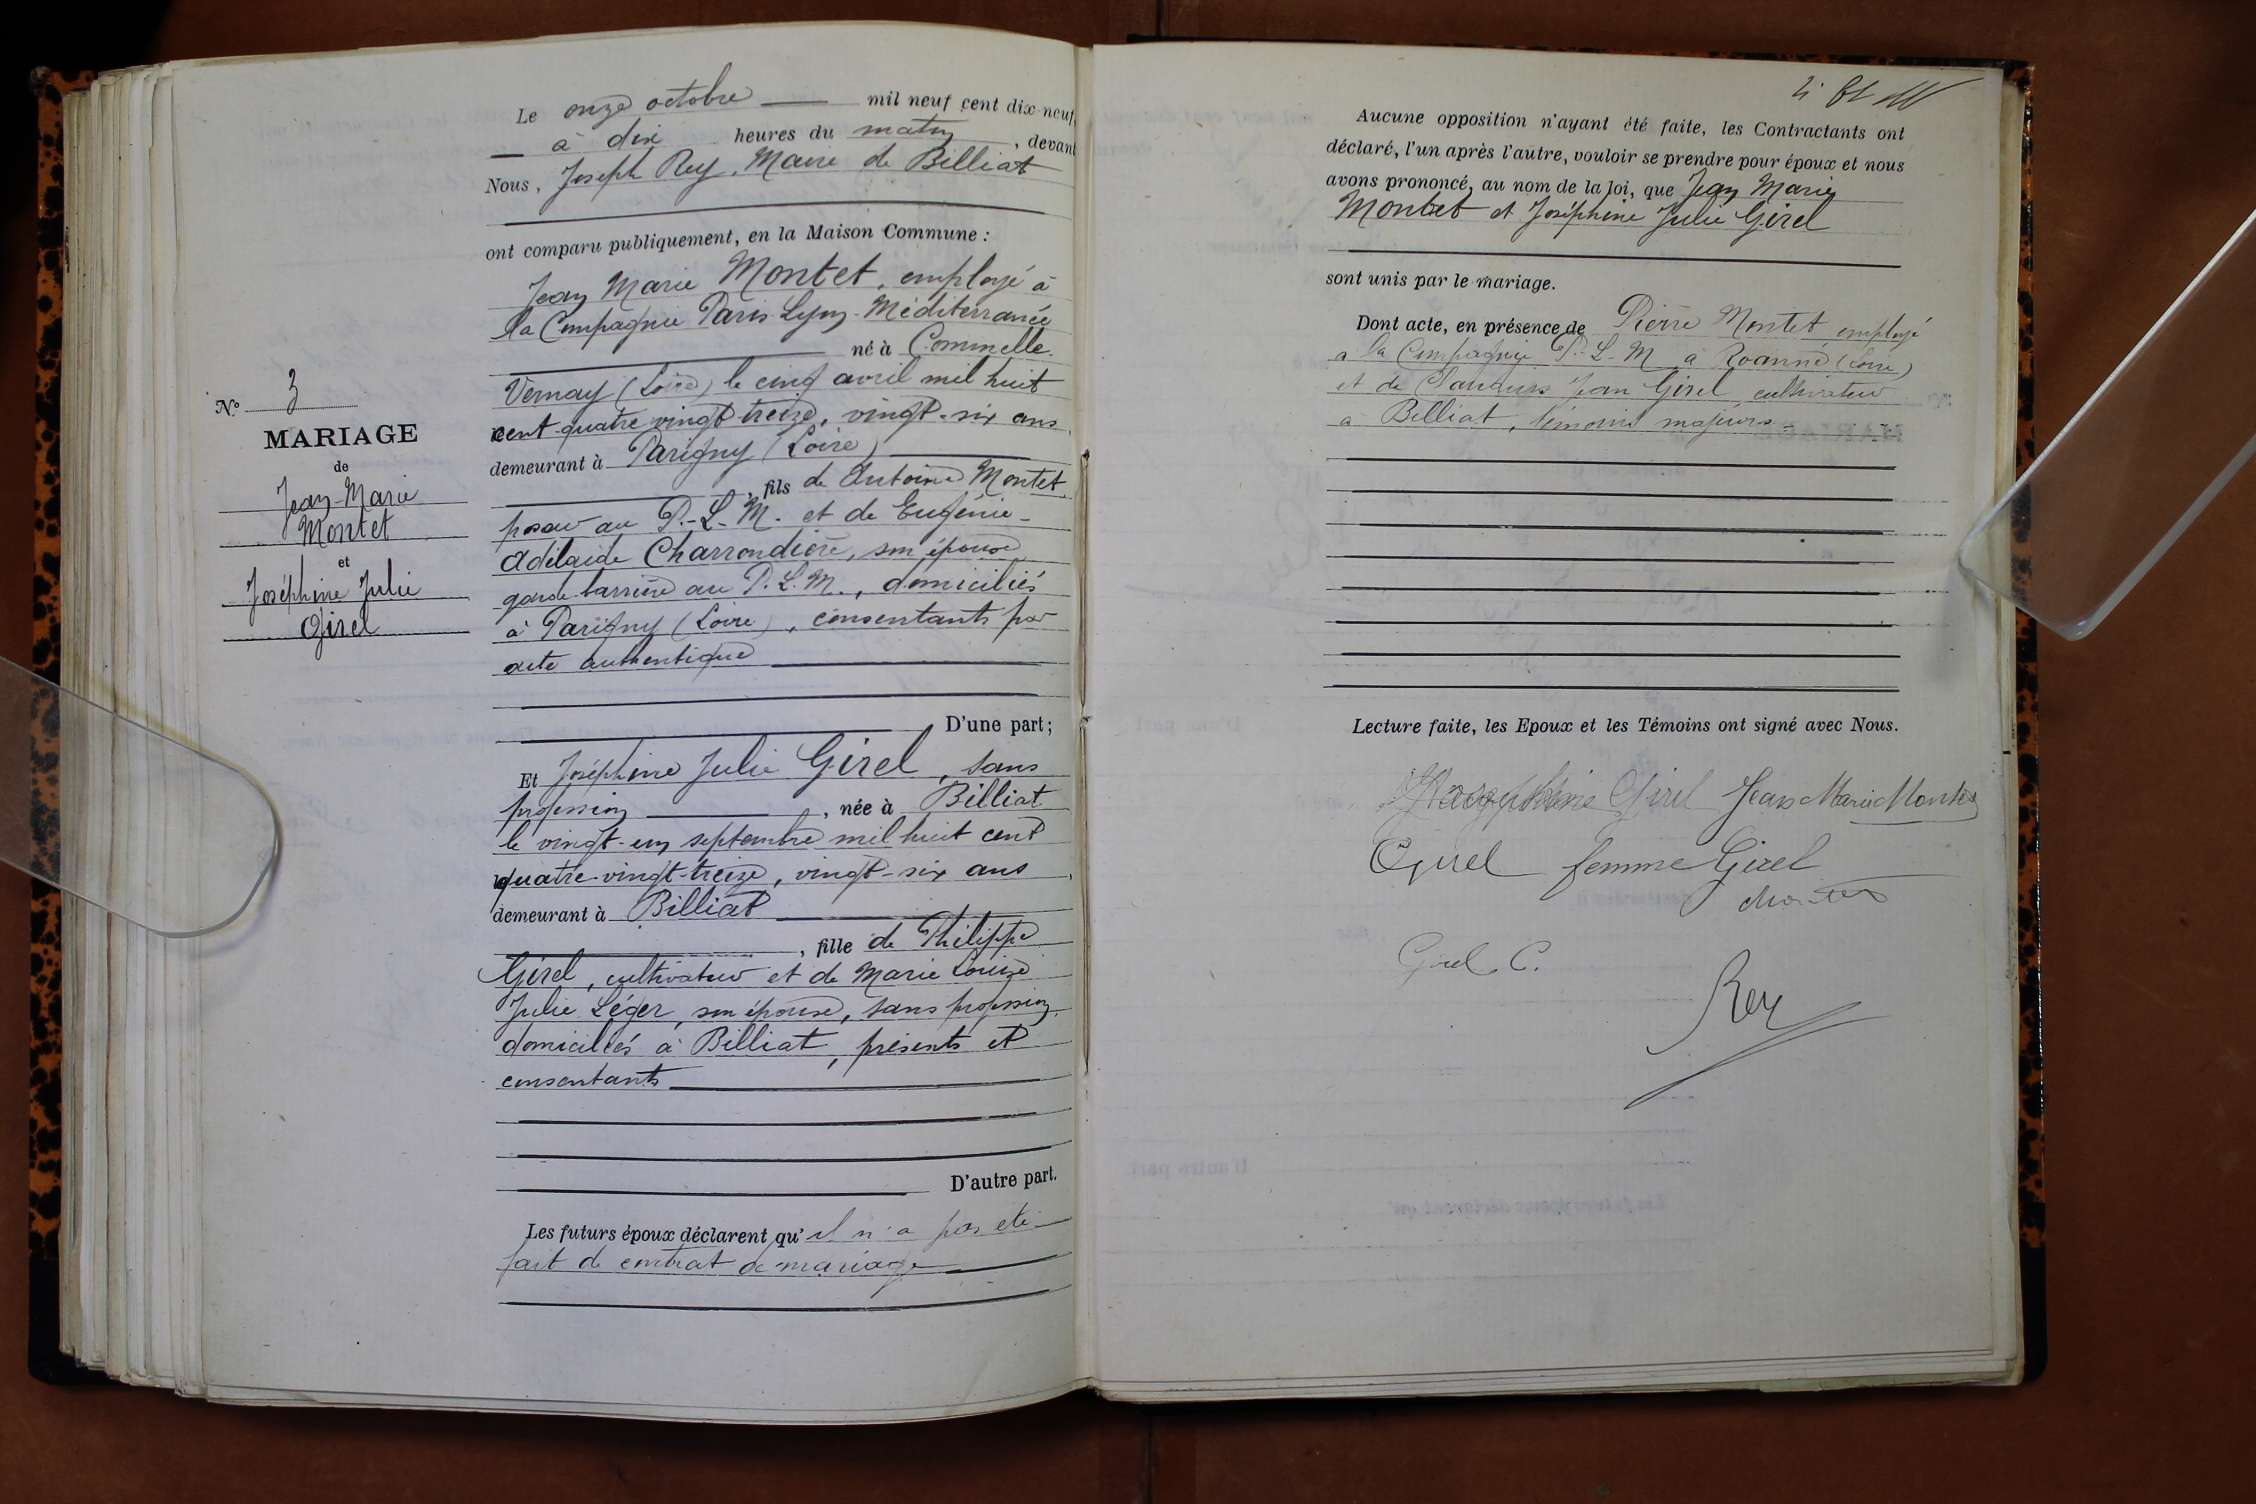 Le onze octobre mil neuf cent dix-neuf,
à dix heures du matin, devant
Nous, Joseph Rey, Maire de Billiat
ont comparu publiquement, en la Maison Commune :
Jean Marie Montet, employé à
la Compagnie Paris-Lyon-Méditerranée
né à Commelle-
Vernay (Loire) le cinq avril mil huit
cent quatre vingt-treize, vingt-six ans
demeurant à Parigny (Loire)
, fils de Antoine Montet
poseur au P.-L.-M. et de Eugénie-
Adélaïde Charrondière, son épouse
garde barrière au P.L.M., domiciliés
à Parigny (Loire), consentants par
acte authentique
D'une part;
Nº 3
MARIAGE
de
Jean-Marie
Montet
et
Joséphine Julie
Girel
Et Joséphine Julie Girel, sans
profession, née à Billiat
le vingt-un septembre mil huit cent
quatre-vingt-treize, vingt-six ans,
demeurant à Billiat
, fille de Philippe
Girel, cultivateur et de Marie Louise
Julie Léger, son épouse, sans profession,
domiciliés à Billiat, présents et
consentants
D'autre part.
Les futurs époux déclarent qu'il n'a pas été
fait de contrat de mariage
Aucune opposition n'ayant été faite, les Contractants ont
déclaré, l'un après l'autre, vouloir se prendre pour époux et nous
avons prononcé, au nom de la loi, que Jean Marie
Montet et Joséphine Julie Girel
sont unis par le mariage.
Dont acte, en présence de Pierre Montet employé
a la Compagnie P.-L-M a Roanne (Loire)
et de Jean Girel cultivateur
a Billiat, témoins majeurs-
Lecture faite, les Epoux et les Témoins ont signé avec Nous.
Girel Jean Marie Montet
Girel femme Girel
Montet
Girel C.
Rey